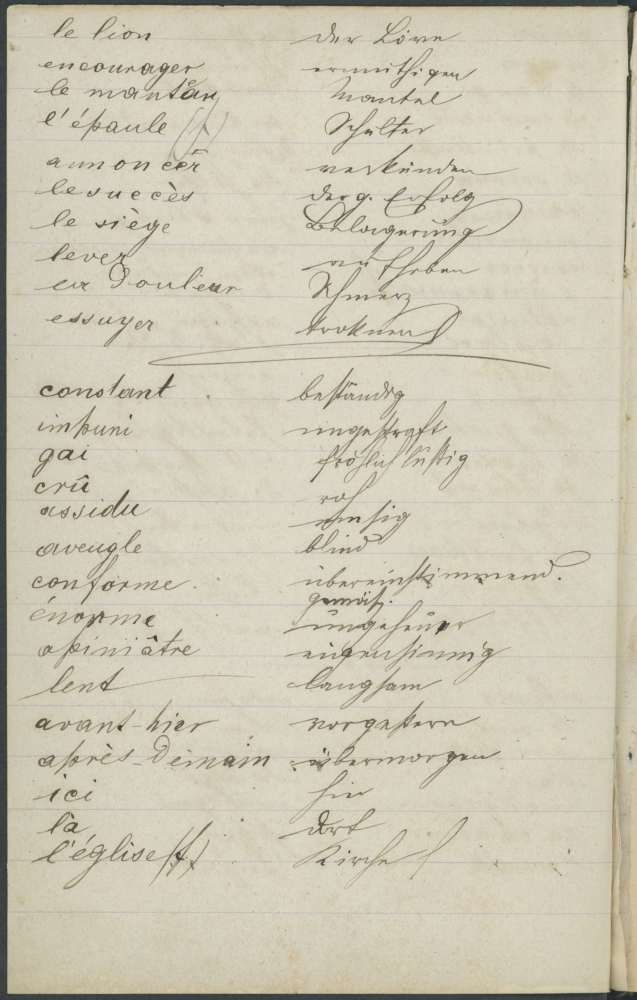 le lion der Löwe
encourager ermuthigen
le mantau Mantel
l'épaule (f) Schulter
annoncer verkünden
le succès der g. Erfolg
le siège Belagerung
lever aufheben
la Douleur Schmerz
essuyer troknen
constant beständig
impuni ungestraft
gai fröhlich lustig
crû roh
assidu emsig
aveugle blind
conforme übereinstimmend.
gemäß.
énorme ungeheuer
opiniâtre eigensinnig
lent langsam
avant-hier vorgestern
après-Demain übermorgen
ici hier
là dort
l'église (f) Kirche